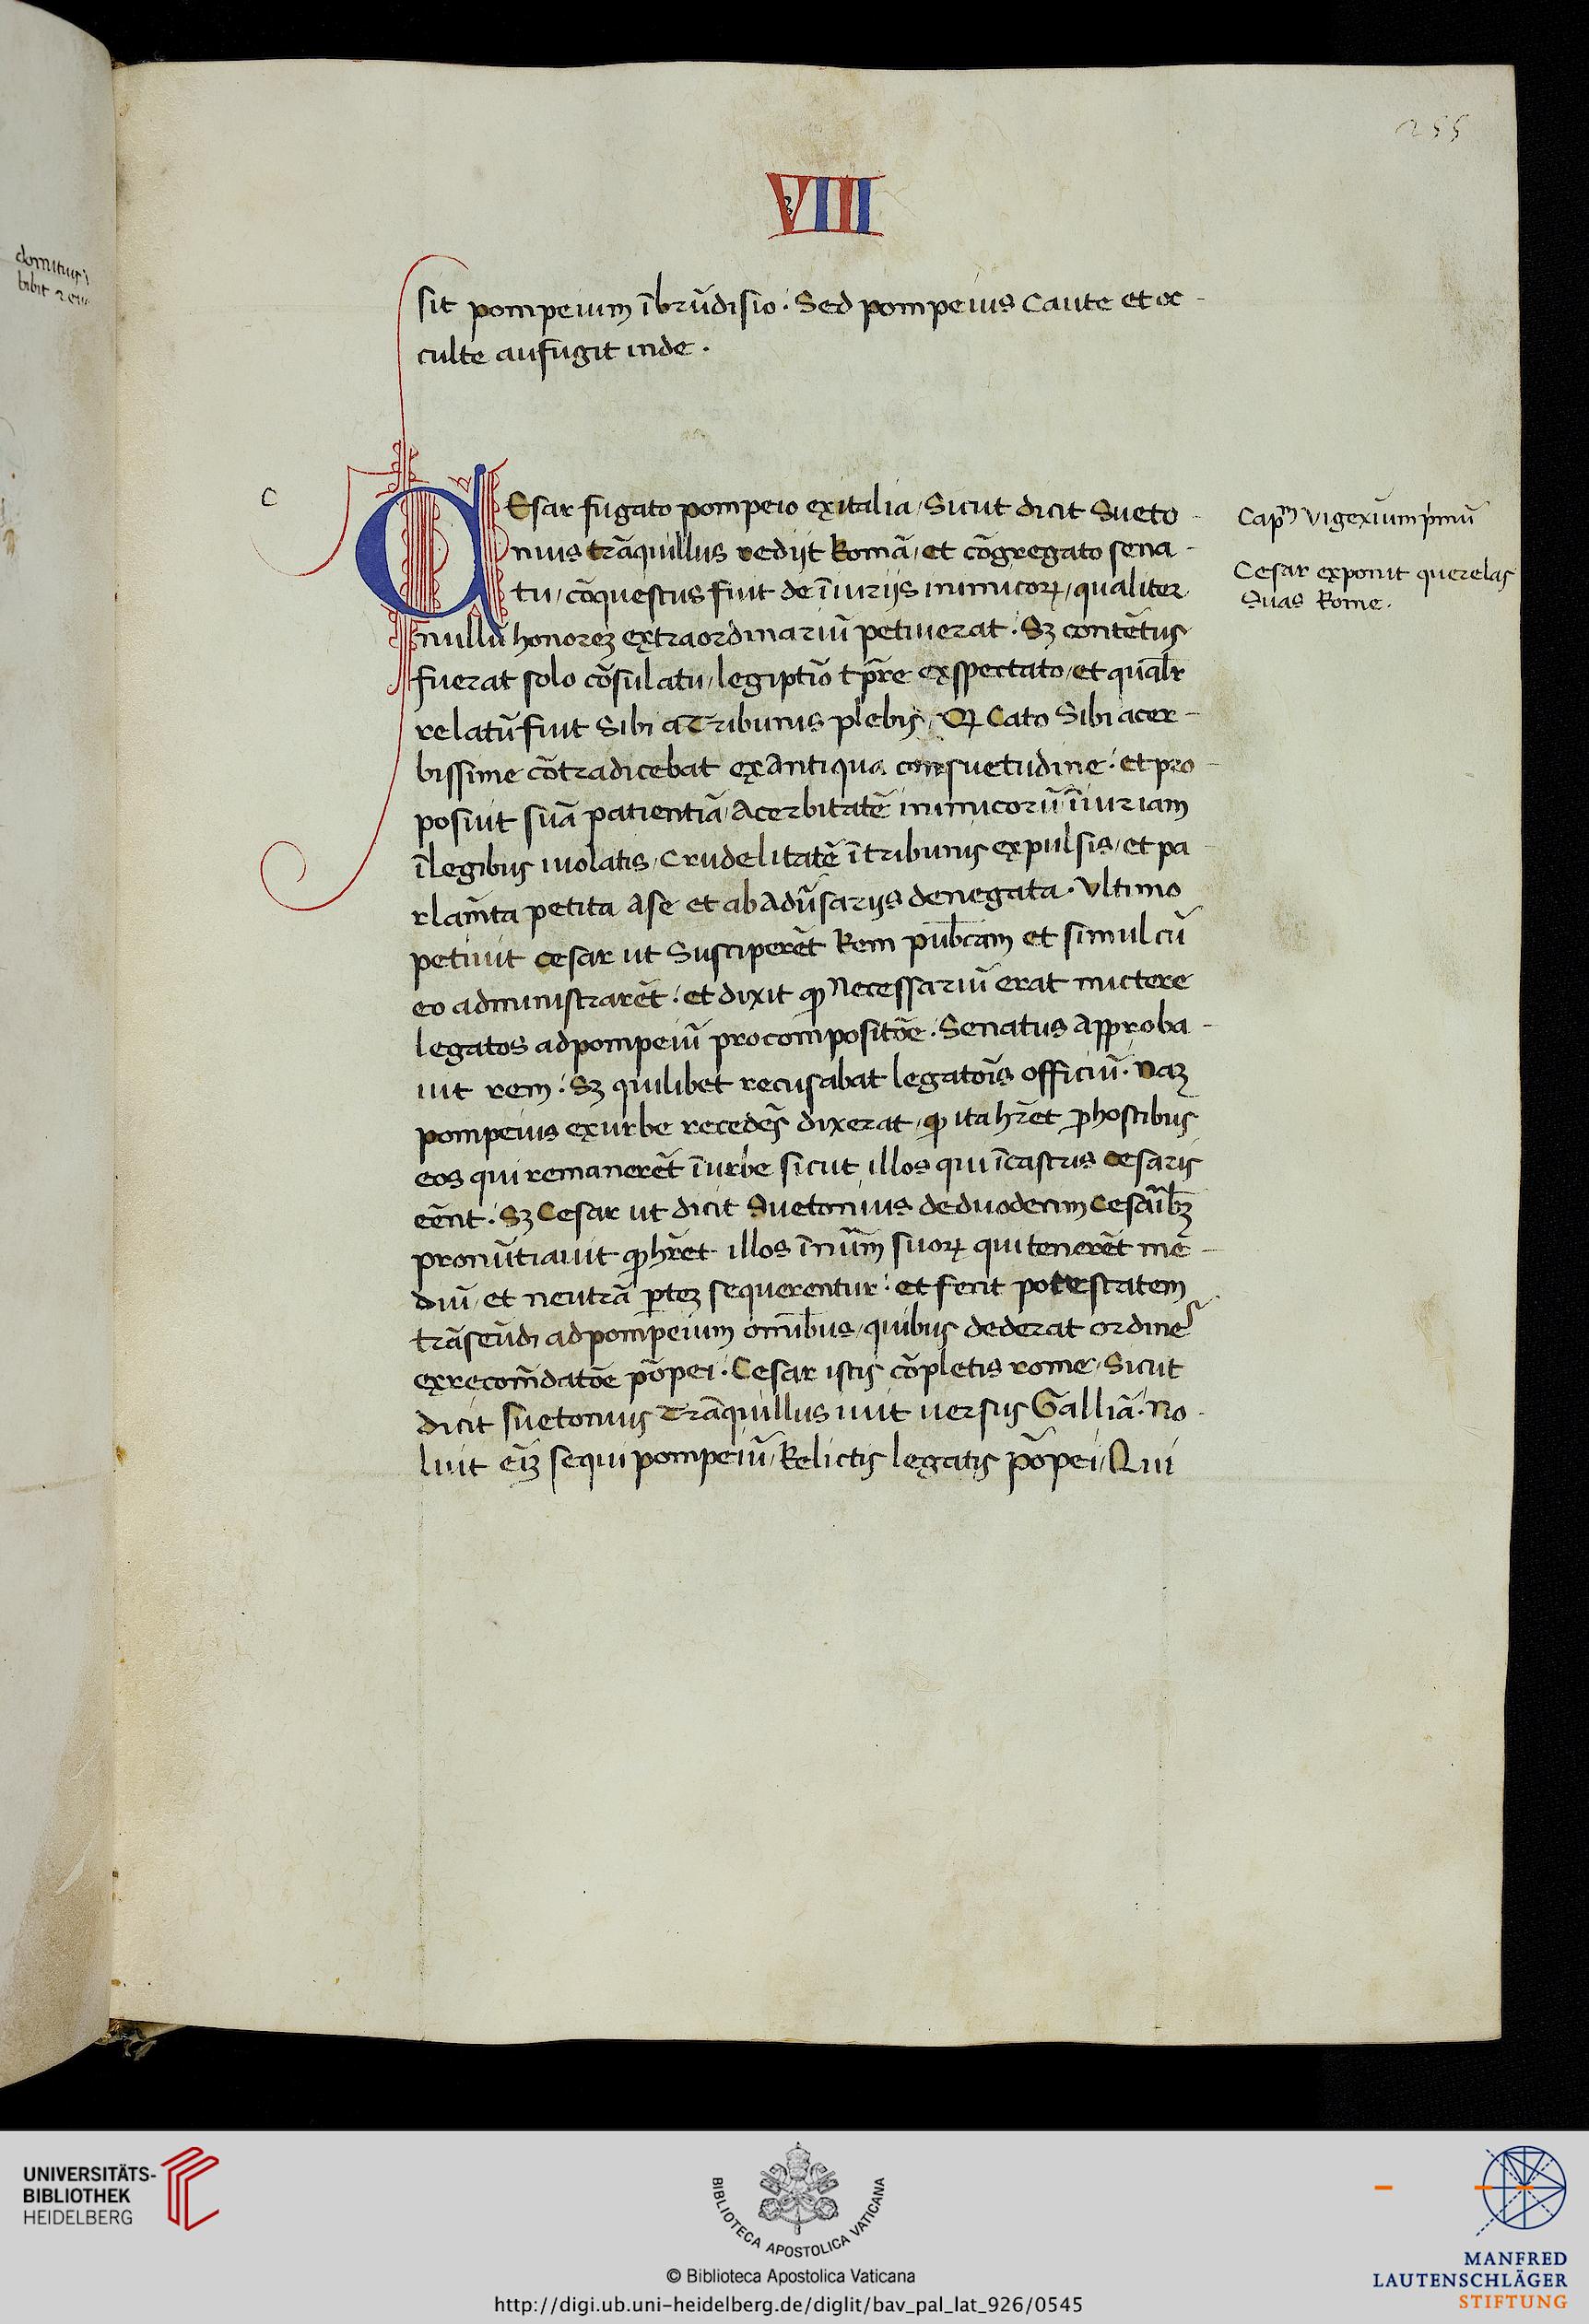 255
VIII
domitius
bibit
sit pompeium ībrūdisio. Sed pompeius Caute et oc-
culte aufugit inde.
c
CEsar fugato pompeio ex italia, Sicut dicit Sueto-
nius trāquillus rediit Romā, et cōgregato sena-
tu, cōquestus fuit de īiuriis inimicoꝝ, qualiter
nullū honoreꝫ extraordinariū petiuerat. Sꝫ contētus
fuerat solo cōsulatu, legiptīo tp̄re exspectato, et qual'r
relatū fuit Sibi a Tribunis plebis, Cato Sibi acer-
bissime cōtradicebat ex Antiqua consuetudine. et pro-
posuit suā patientiā, Acerbitatē inimicorū, īiuriam
ī legibus uiolatis, Crudelitatē ī tribunis expulsis, et pa
rlam̄ta petita A se et ab Adūsariis denegata. Vltimo
petiuit cesar ut Susciperēt Rem pub̄cam et simul cū
eo administrarēt. et dixit ꝙ Necessariū erat mictere
legatos ad pompeiū pro compositōe. Senatus Approba-
uit rem. Sꝫ quilibet recusabat legatōis officiū. Naꝫ
pompeius ex urbe recedēs dixerat, ꝙ ita hr̄et ꝓ hostibus
eos qui remanerēt ī urbe sicut illos qui ī castris cesaris
eēnt. Sꝫ Cesar ut dicit Suetonius de duodecim Cesaribꝫ
pronūtiauit ꝙ hr̄et illos ī nūm̄ suoꝝ qui tenerēt me-
diū, et neutrā ꝑteꝫ sequerentur. et fecit potestatem
trāseūdi ad pompeium om̄ibus, quibus dederat ordinē
ex recom̄datōe pōpei. Cesar istis cōpletis rome, Sicut
dicit suetonius Trāquillus iuit uersus Galliā. No-
luit eīꝫ sequi pompeiū, Relictis legatis pōpei, Qui
Capm̄ vigexium p̄mū
Cesar exponit querelas
suas Rome.
UNIVERSITÄTS-
BIBLIOTHEK
HEIDELBERG
BIBLIOTECA APOSTOLICA VATICANA
© Biblioteca Apostolica Vaticana
http://digi.ub.uni-heidelberg.de/diglit/bav_pal_lat_926/0545
MANFRED
LAUTENSCHLÄGER
STIFTUNG